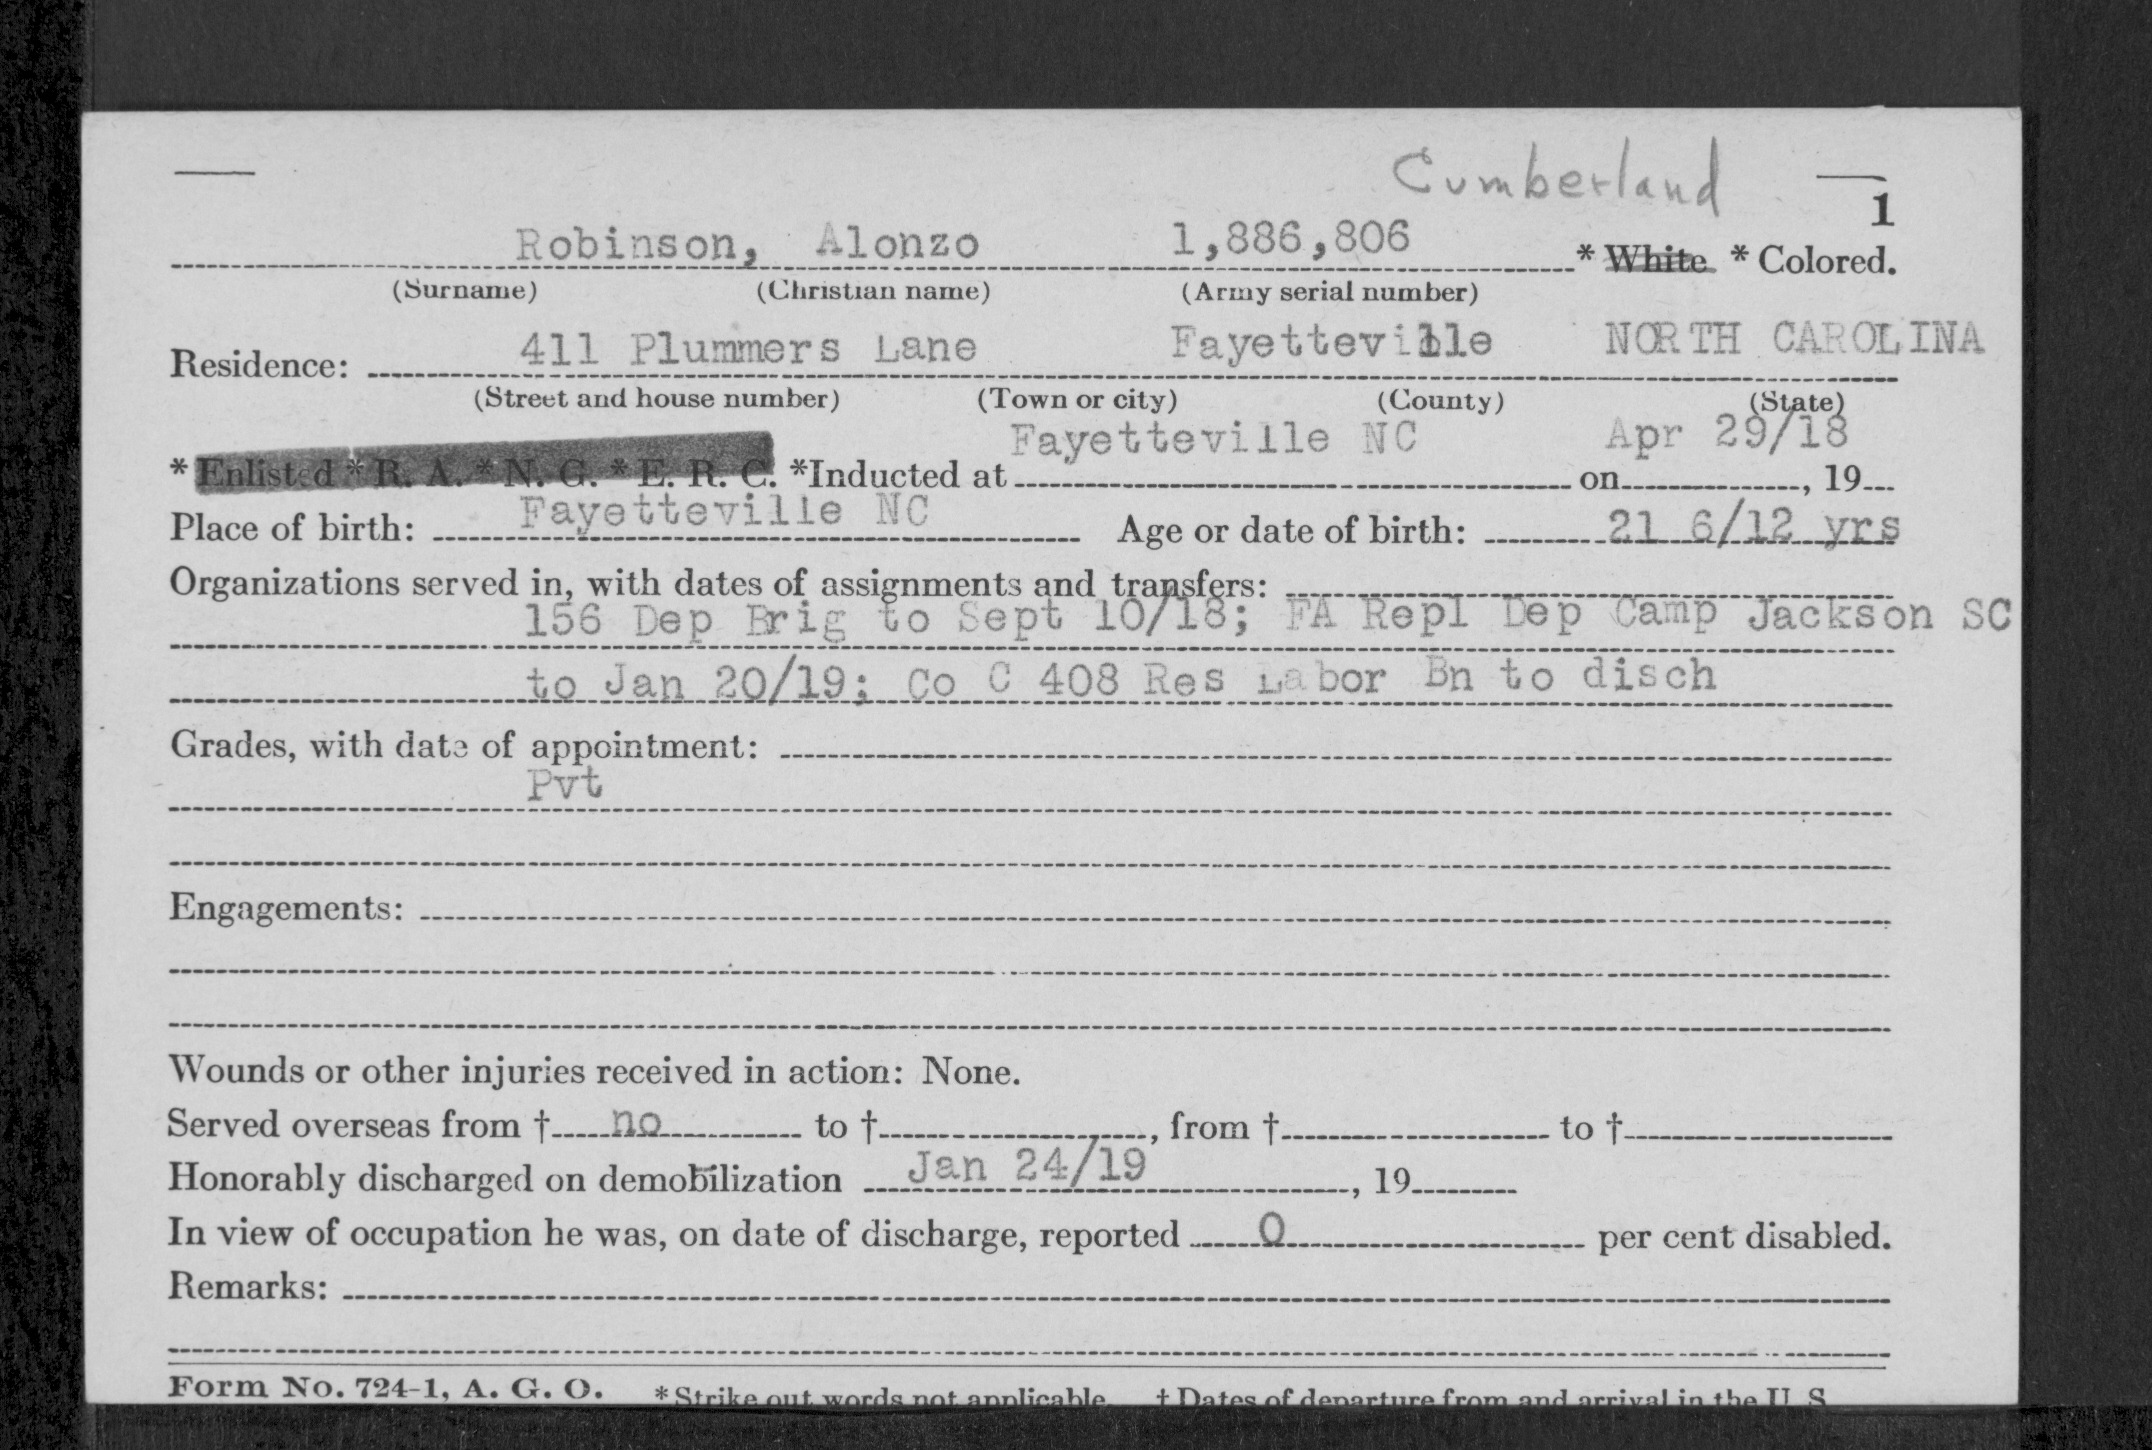 Cumberland
1
Robinson, Alonzo 1,886,806 * White * Colored.
(Surname) (Christian name) (Army serial number)
Residence: 411 Plummers Lane Fayetteville NORTH CAROLINA
(Street and house number) (Town or city) (County) (State)
* Enlisted * R. A. * N. G. * E. R. C. *Inducted at Fayetteville NC on Apr 29/18, 19
Place of birth: Fayetteville NC Age or date of birth: 21 6/12 yrs
Organizations served in, with dates of assignments and transfers:
156 Dep Brig to Sept 10/18; FA Repl Dep Camp Jackson SC
to Jan 20/19; Co C 408 Res Labor Bn to disch
Grades, with date of appointment:
Pvt
Engagements:
Wounds or other injuries received in action: None.
Served overseas from † no to †, from † to †
Honorably discharged on demobilization Jan 24/19, 19
In view of occupation he was, on date of discharge, reported 0 per cent disabled.
Remarks:
Form No. 724-1, A. G. O. * Strike out words not applicable. † Dates of departure from and arrival in the U. S.